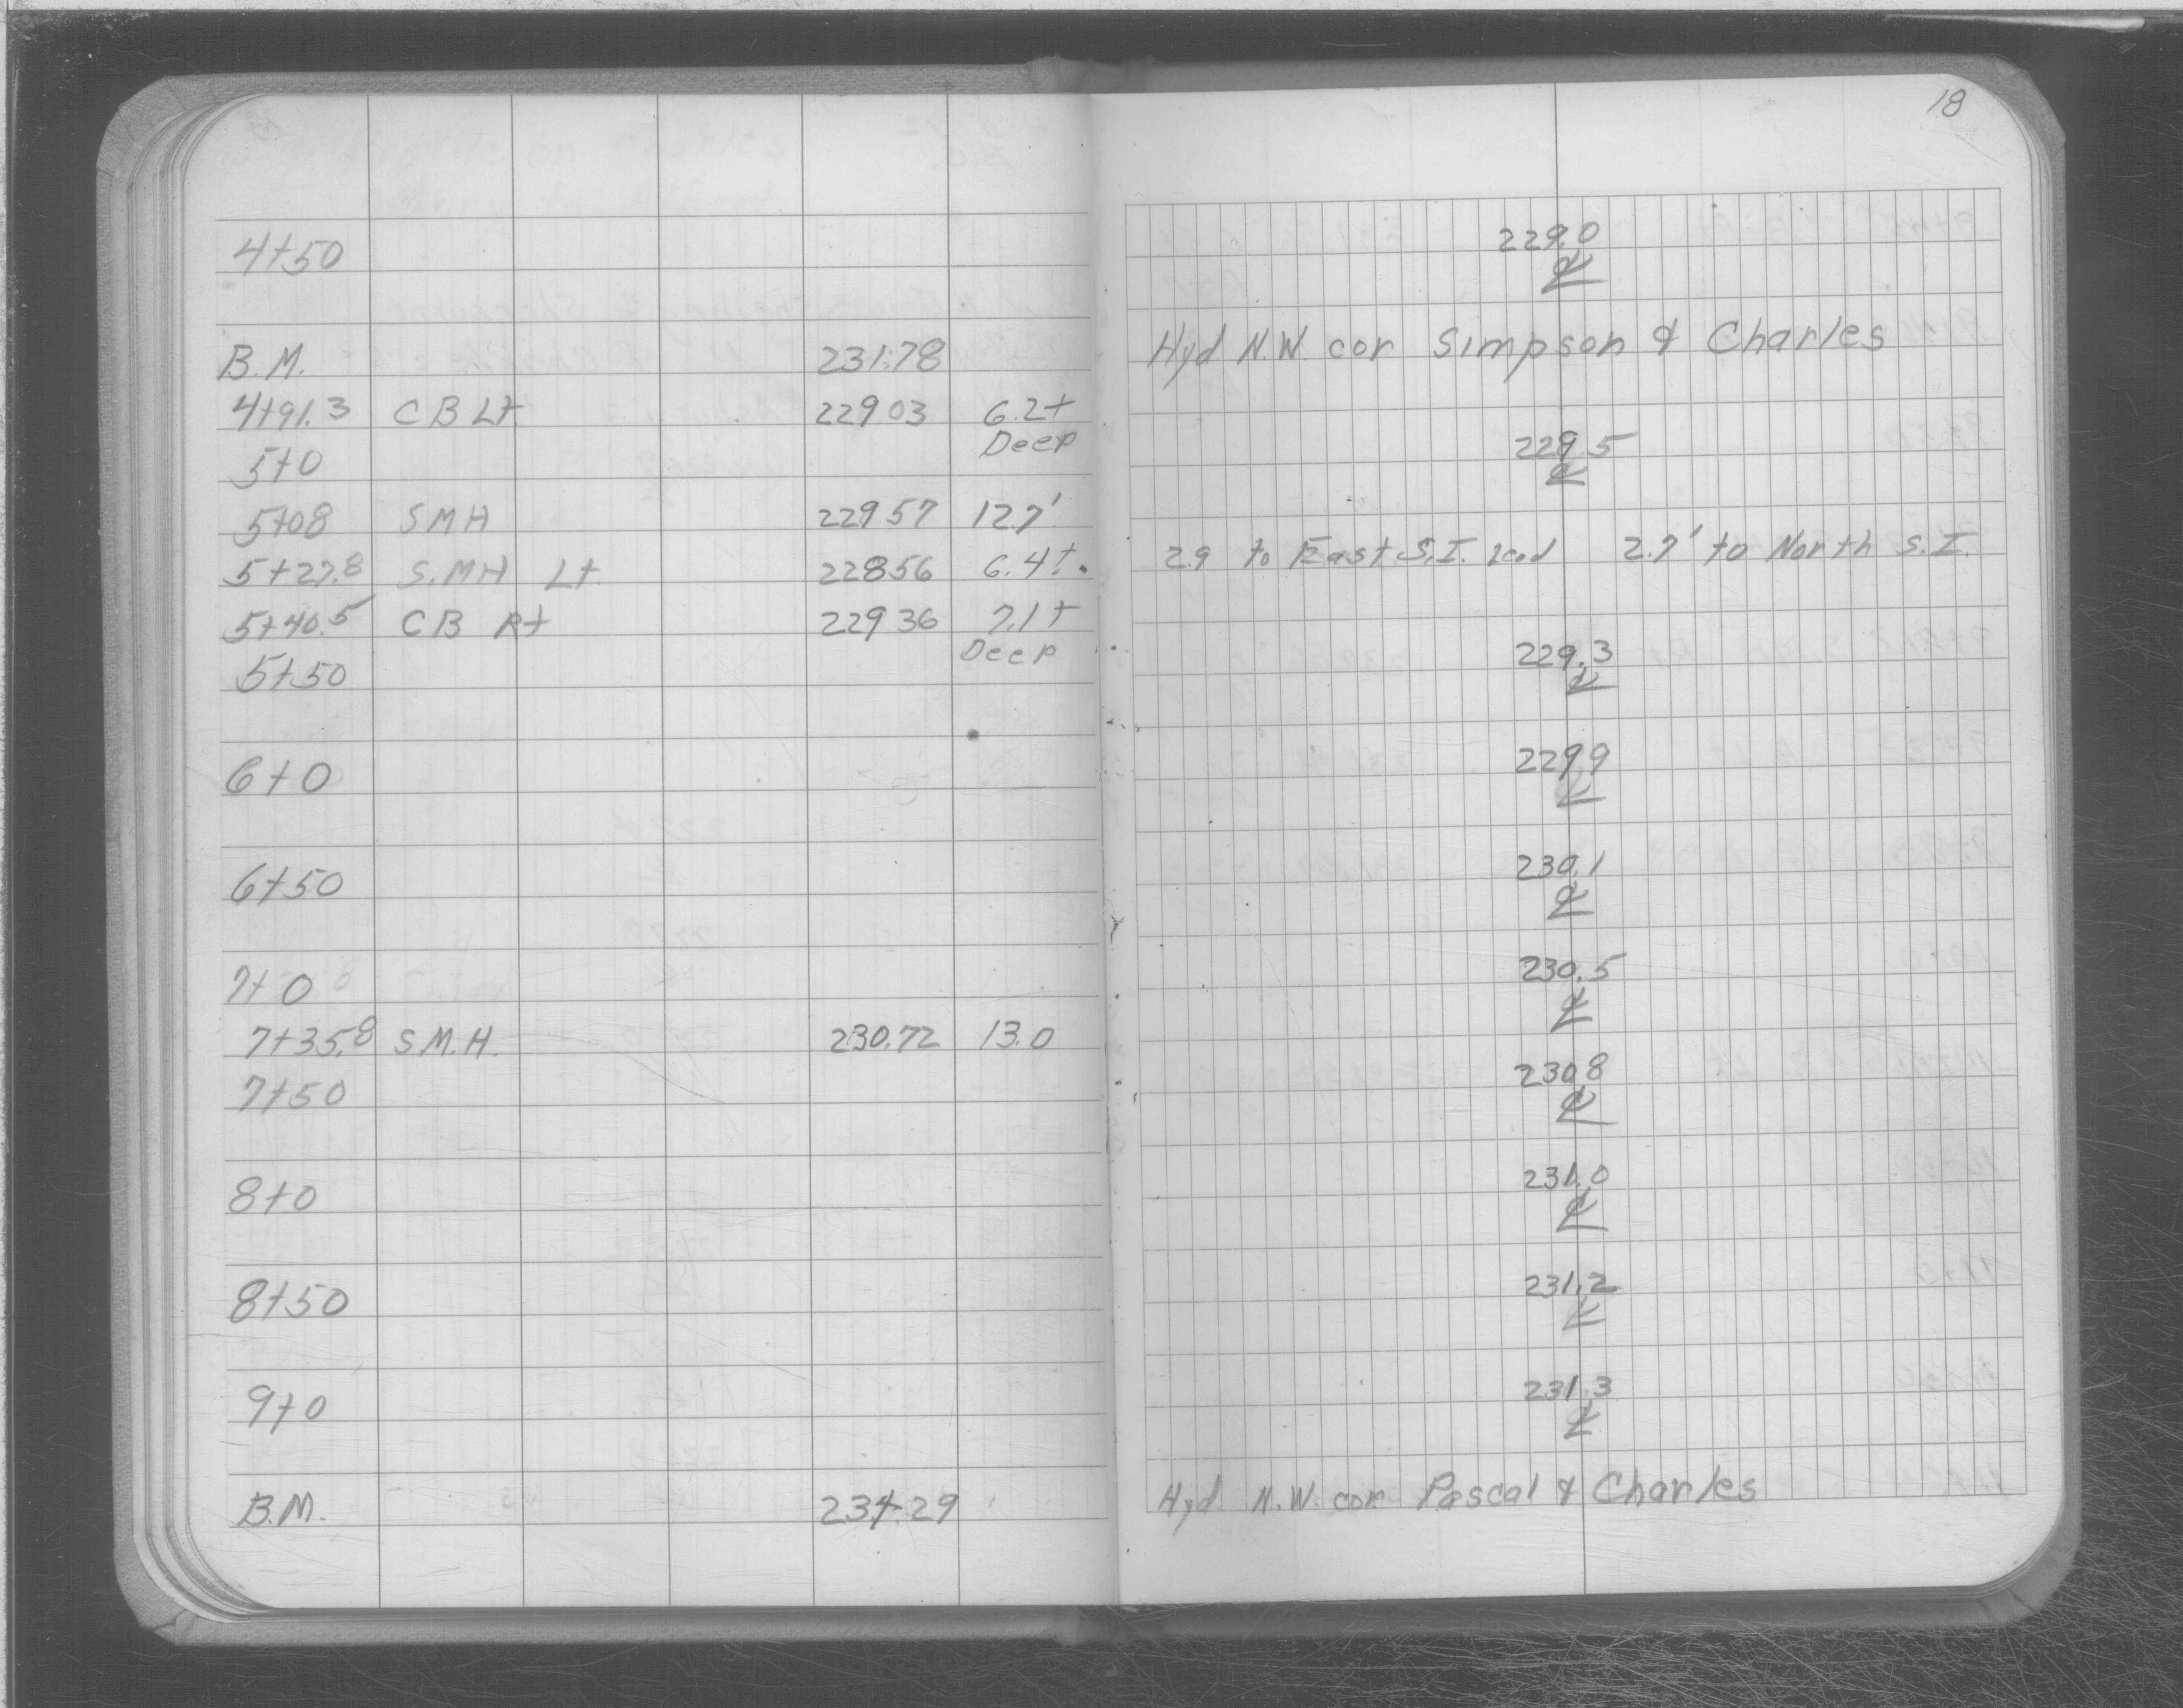 18
4+50 229.0 ℄
B.M. 231.78 Hyd N.W. cor Simpson & Charles
4+91.3 CB Lt 229 03 6.2±
Deep
5+0 229.5 ℄
5+08 SMH 229 57 12.7'
5+27.8 S.MH Lt 228 56 6.4± 2.9 to East S.I. Lead 2.7' to North S.I.
5+40.5 CB Rt 229 36 7.1±
Deep
5+50 229.3 ℄
6+0 229.9 ℄
6+50 230.1 ℄
7+0 230.5 ℄
7+35.8 S.M.H. 230.72 13.0
7+50 230.8 ℄
8+0 231.0 ℄
8+50 231.2 ℄
9+0 231.3 ℄
B.M. 234.29 Hyd. N.W. cor Pascal & Charles